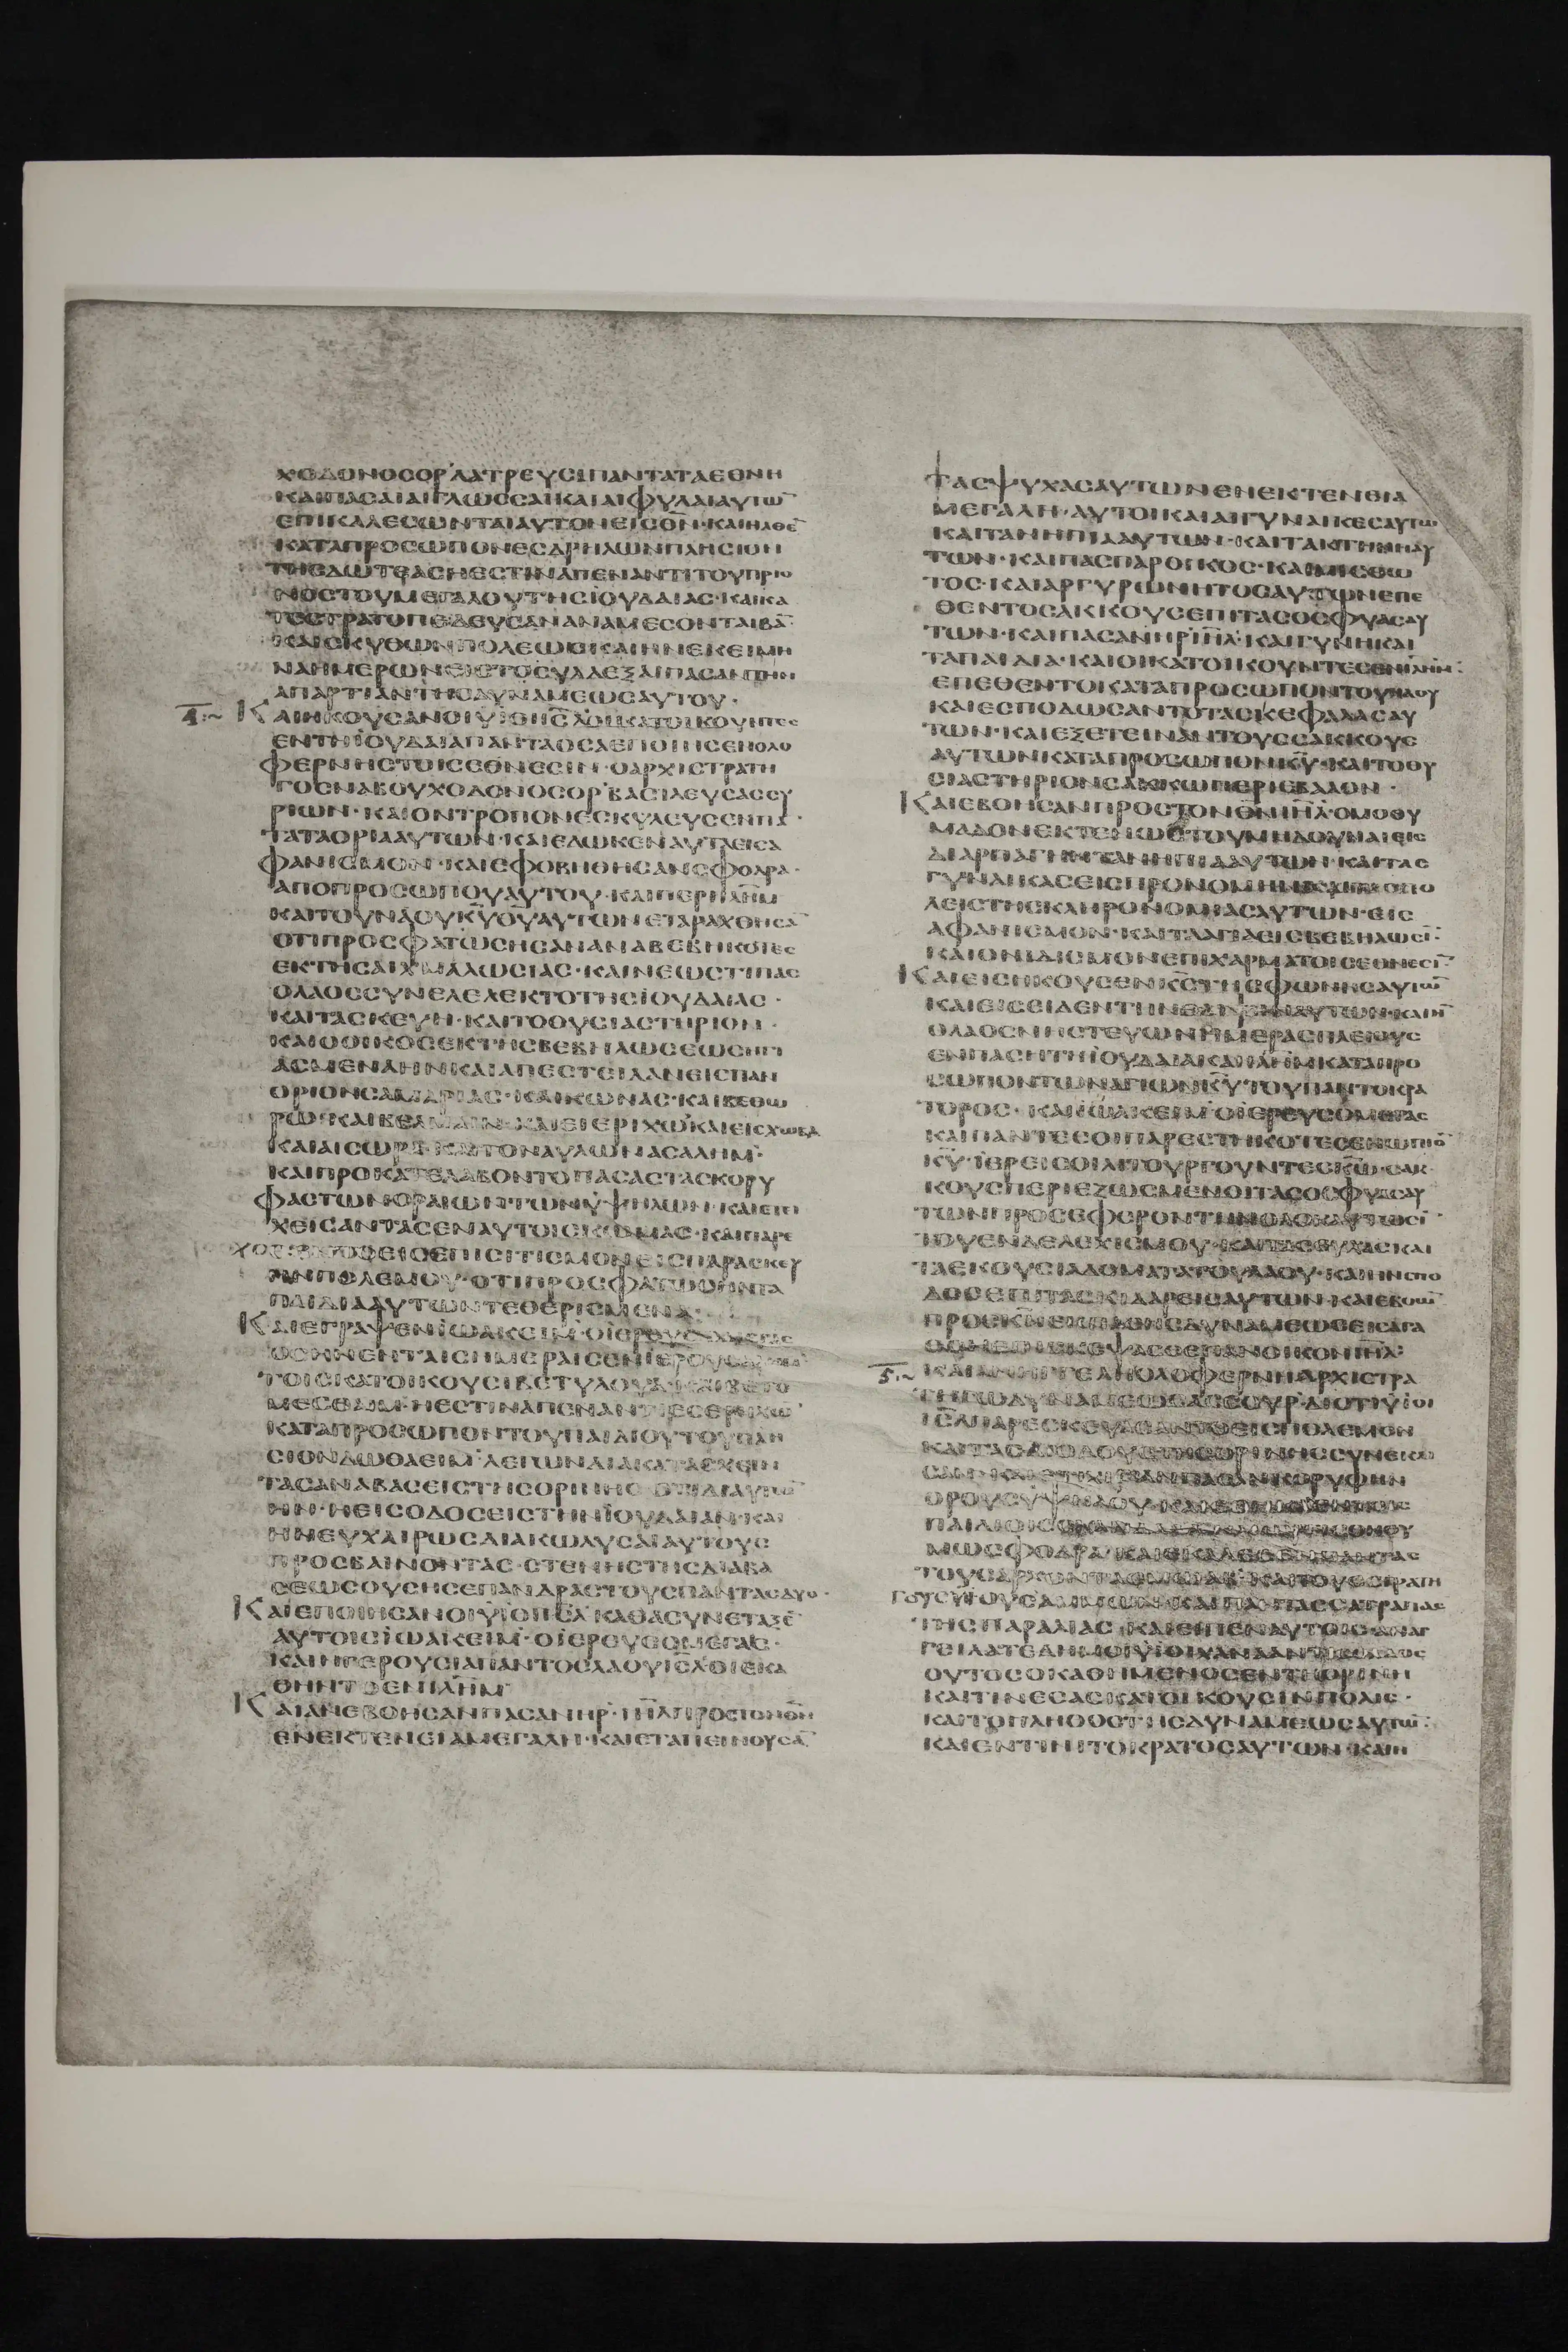 ΧΟΔΟΝΟΣΟΡ ΛΑΤΡΕΥΣΩΣΙ ΠΑΝΤΑΤΑΕΘΝΗ
ΚΑΙΠΑΣΑΙΑΙΓΛΩΣΣΑΙΚΑΙΑΙΦΥΛΑΙΑΥΤΩ̅
ΕΠΙΚΑΛΕΣΩΝΤΑΙΑΥΤΟΝΕΙΣΘ̅Ν̅·ΚΑΙΗΛΘΕ̅
ΚΑΤΑΠΡΟΣΩΠΟΝΕΣΔΡΗΛΩΝΠΛΗΣΙΟΝ
ΤΗΣΔΩΤΕΑΣΗΕΣΤΙΝΑΠΕΝΑΝΤΙΤΟΥΠΡΙΟ
ΝΟΣΤΟΥΜΕΓΑΛΟΥΤΗΣΙΟΥΔΑΙΑΣ·ΚΑΙΚΑ
ΤΕΣΤΡΑΤΟΠΕΔΕΥΣΑΝΑΝΑΜΕΣΟΝΤΑΙΒΑ̅
ΚΑΙΣΚΥΘΩΝΠΟΛΕΩΣΚΑΙΗΝΕΚΕΙΜΗ
ΝΑΗΜΕΡΩΝΕΙΣΤΟΣΥΛΛΕΞΑΙΠΑΣΑΝΤΗΝ
ΑΠΑΡΤΙΑΝΤΗΣΔΥΝΑΜΕΩΣΑΥΤΟΥ·
ΚΑΙΗΚΟΥΣΑΝΟΙΥΙΟΙΙ̅Σ̅Λ̅ΟΙΚΑΤΟΙΚΟΥΝΤΕΣ
ΕΝΤΗΙΟΥΔΑΙΑΠΑΝΤΑΟΣΑΕΠΟΙΗΣΕΝΟΛΟ
ΦΕΡΝΗΣΤΟΙΣΕΘΝΕΣΙΝ·ΟΑΡΧΙΣΤΡΑΤΗ
ΓΟΣΝΑΒΟΥΧΟΔΟΝΟΣΟΡ ΒΑΣΙΛΕΥΣΑΣΣΥ
ΡΙΩΝ·ΚΑΙΟΝΤΡΟΠΟΝΕΣΚΥΛΕΥΣΕΝΠΑ̅
ΤΑΤΑΟΡΙΑΑΥΤΩΝ·ΚΑΙΕΔΩΚΕΝΑΥΤΑΕΙΣΑ
ΦΑΝΙΣΜΟΝ·ΚΑΙΕΦΟΒΗΘΗΣΑΝΣΦΟΔΡΑ·
ΑΠΟΠΡΟΣΩΠΟΥΑΥΤΟΥ·ΚΑΙΠΕΡΙΙ̅Λ̅Η̅Μ̅
ΚΑΙΤΟΥΝΑΟΥΚ̅Υ̅Θ̅Υ̅ΑΥΤΩΝΕΤΑΡΑΧΘΗΣΑ̅
ΟΤΙΠΡΟΣΦΑΤΩΣΗΣΑΝΑΝΑΒΕΒΗΚΟΤΕΣ
ΕΚΤΗΣΑΙΧΜΑΛΩΣΙΑΣ·ΚΑΙΝΕΩΣΤΙΠΑΣ
ΟΛΑΟΣΣΥΝΕΛΕΛΕΚΤΟΤΗΣΙΟΥΔΑΙΑΣ·
ΚΑΙΤΑΣΚΕΥΗ·ΚΑΙΤΟΘΥΣΙΑΣΤΗΡΙΟΝ·
ΚΑΙΟΟΙΚΟΣΕΚΤΗΣΒΕΒΗΛΩΣΕΩΣΗΓΙ
ΑΣΜΕΝΑΗΝΚΑΙΑΠΕΣΤΕΙΛΑΝΕΙΣΠΑΝ
ΟΡΙΟΝΣΑΜΑΡΙΑΣ·ΚΑΙΚΩΝΑΣ·ΚΑΙΒΕΘΩ
ΡΩ·ΚΑΙΒΕΛΜΑΙΝ·ΚΑΙΕΙΕΡΙΧΩ·ΚΑΙΕΙΣΧΩΒΑ
ΚΑΙΑΙΣΩΡΑ·ΚΑΙΤΟΝΑΥΛΩΝΑΣΑΛΗΜ·
ΚΑΙΠΡΟΚΑΤΕΛΑΒΟΝΤΟΠΑΣΑΣΤΑΣΚΟΡΥ
ΦΑΣΤΩΝΟΡΑΙΩΝΤΩΝΥΨΗΛΩΝ·ΚΑΙΕΤΙ
ΧΕΙΣΑΝΤΑΣΕΝΑΥΤΟΙΣΚΩΜΑΣ·ΚΑΙΠΑΡΕ
ΕΙΣΕΠΙΣΙΤΙΣΜΟΝΕΙΣΠΑΡΑΣΚΕΥ
ΗΝΠΟΛΕΜΟΥ·ΟΤΙΠΡΟΣΦΑΤΩΣΗΝΤΑ
ΠΑΙΔΙΑΑΥΤΩΝΤΕΘΕΡΙΣΜΕΝΑ·
ΚΑΙΕΓΡΑΨΕΝΙΩΑΚΕΙΜ·ΟΙΕΡΕΥΣΟΜΕΓΑΣ
ΟΣΗΝΕΝΤΑΙΣΗΜΕΡΑΙΣΕΝΙΕΡΟΥΣΑΛΗΜ
ΤΟΙΣΚΑΤΟΙΚΟΥΣΙΒΕΤΥΛΟΥΑ·ΚΑΙΒΕΤΟ
ΜΕΣΘΑΙΜ·ΗΕΣΤΙΝΑΠΕΝΑΝΤΙΕΣΕΡΗΧΩ̅
ΚΑΤΑΠΡΟΣΩΠΟΝΤΟΥΠΑΙΔΙΟΥΤΟΥΠΛΗ
ΣΙΟΝΔΩΘΑΕΙΜ·ΛΕΓΩΝΔΙΑΚΑΤΑΣΧΕΙΝ
ΤΑΣΑΝΑΒΑΣΕΙΣΤΗΣΟΡΙΝΗΣ·ΟΤΙΔΙΑΥΤΩ̅
ΗΝ·ΗΕΙΣΟΔΟΣΕΙΣΤΗΝΙΟΥΔΑΙΑΝ·ΚΑΙ
ΗΝΕΥΧΑΙΡΩΣΔΙΑΚΩΛΥΣΑΙΑΥΤΟΥΣ
ΠΡΟΣΒΑΙΝΟΝΤΑΣ·ΣΤΕΝΗΣΤΗΣΔΙΑΒΑ
ΣΕΩΣΟΥΣΗΣΕΠΑΝΔΡΑΣΤΟΥΣΠΑΝΤΑΣΔΥΟ·
ΚΑΙΕΠΟΙΗΣΑΝΟΙΥΙΟΙΙ̅Σ̅Λ̅ΚΑΘΑΣΥΝΕΤΑΞΕ̅
ΑΥΤΟΙΣΙΩΑΚΕΙΜ·ΟΙΕΡΕΥΣΟΜΕΓΑΣ·
ΚΑΙΗΓΕΡΟΥΣΙΑΠΑΝΤΟΣΛΑΟΥΙ̅Σ̅Λ̅ΟΙΕΚΑ
ΘΗΝΤΟΕΝΙ̅Λ̅Η̅Μ̅
ΚΑΙΑΝΕΒΟΗΣΑΝΠΑΣΑΝΗΡ·Ι̅Η̅Λ̅ΠΡΟΣΤΟΝΘ̅Ν̅
ΕΝΕΚΤΕΝΕΙΑΜΕΓΑΛΗ·ΚΑΙΕΤΑΠΕΙΝΟΥΣΑ̅
ΤΑΣΨΥΧΑΣΑΥΤΩΝΕΝΕΚΤΕΝΕΙΑ
ΜΕΓΑΛΗ·ΑΥΤΟΙΚΑΙΑΙΓΥΝΑΙΚΕΣΑΥΤΩ̅
ΚΑΙΤΑΝΗΠΙΑΑΥΤΩΝ·ΚΑΙΤΑΚΤΗΝΗΑΥ
ΤΩΝ·ΚΑΙΠΑΣΠΑΡΟΙΚΟΣ·ΚΑΙΜΙΣΘΩ
ΤΟΣ·ΚΑΙΑΡΓΥΡΩΝΗΤΟΣΑΥΤΩΝΕΠΕ
ΘΕΝΤΟΣΑΚΚΟΥΣΕΠΙΤΑΣΟΣΦΥΑΣΑΥ
ΤΩΝ·ΚΑΙΠΑΣΑΝΗΡΙ̅Η̅Λ̅·ΚΑΙΓΥΝΗΚΑΙ
ΤΑΠΑΙΔΙΑ·ΚΑΙΟΙΚΑΤΟΙΚΟΥΝΤΕΣΕΝΙ̅Λ̅Η̅Μ̅:
ΕΠΕΘΕΝΤΟΚΑΤΑΠΡΟΣΩΠΟΝΤΟΥΝΑΟΥ
ΚΑΙΕΣΠΟΔΩΣΑΝΤΟΤΑΣΚΕΦΑΛΑΣΑΥ
ΤΩΝ·ΚΑΙΕΞΕΤΕΙΝΑΝΤΟΥΣΣΑΚΚΟΥΣ
ΑΥΤΩΝΚΑΤΑΠΡΟΣΩΠΟΝΚ̅Υ̅·ΚΑΙΤΟΘΥ
ΣΙΑΣΤΗΡΙΟΝΣΑΚΚΩΠΕΡΙΕΒΑΛΟΝ·
ΚΑΙΕΒΟΗΣΑΝΠΡΟΣΤΟΝΘ̅Ν̅Ι̅Η̅Λ̅·ΟΜΟΘΥ
ΜΑΔΟΝΕΚΤΕΝΩΣΤΟΥΜΗΔΟΥΝΑΙΕΙΣ
ΔΙΑΡΠΑΓΗΝΤΑΝΗΠΙΑΑΥΤΩΝ·ΚΑΙΤΑΣ
ΓΥΝΑΙΚΑΣΕΙΣΠΡΟΝΟΜΗΝΚΑΙΤΑΣΠΟ
ΛΕΙΣΤΗΣΚΛΗΡΟΝΟΜΙΑΣΑΥΤΩΝ·ΕΙΣ
ΑΦΑΝΙΣΜΟΝ·ΚΑΙΤΑΑΓΙΑΕΙΣΒΕΒΗΛΩΣΙ̅·
ΚΑΙΟΝΙΔΙΣΜΟΝΕΠΙΧΑΡΜΑΤΟΙΣΕΘΝΕΣΙ̅
ΚΑΙΕΙΣΗΚΟΥΣΕΝΚ̅Σ̅ΤΗΣΦΩΝΗΣΑΥΤΩ̅
ΚΑΙΕΙΣΕΙΔΕΝΤΗΝΘΛΙΨΙΝΑΥΤΩΝ·ΚΑΙΗ̅
ΟΛΑΟΣΝΗΣΤΕΥΩΝΗΜΕΡΑΣΠΛΕΙΟΥΣ
ΕΝΠΑΣΗΤΗΙΟΥΔΑΙΑΚΑΙΙ̅Λ̅Η̅Μ̅ΚΑΤΑΠΡΟ
ΣΩΠΟΝΤΩΝΑΓΙΩΝΚ̅Υ̅ΤΟΥΠΑΝΤΟΚΡΑ
ΤΟΡΟΣ·ΚΑΙΙΩΑΚΕΙΜ·ΟΙΕΡΕΥΣΟΜΕΓΑΣ
ΚΑΙΠΑΝΤΕΣΟΙΠΑΡΕΣΤΗΚΟΤΕΣΕΝΩΠΙΟ̅
Κ̅Υ̅·ΙΕΡΕΙΣΟΙΛΙΤΟΥΡΓΟΥΝΤΕΣΚ̅Ω̅·ΣΑΚ
ΚΟΥΣΠΕΡΙΕΖΩΣΜΕΝΟΙΤΑΣΟΣΦΥΑΣΑΥ
ΤΩΝΠΡΟΣΕΦΕΡΟΝΤΗΝΟΛΟΚΑΥΤΩΣΙ̅
ΤΟΥΕΝΔΕΛΕΧΙΣΜΟΥ·ΚΑΙΤΑΣΕΥΧΑΣΚΑΙ
ΤΑΕΚΟΥΣΙΑΔΟΜΑΤΑΤΟΥΛΑΟΥ·ΚΑΙΗΝΣΠΟ
ΔΟΣΕΠΙΤΑΣΚΙΔΑΡΕΙΣΑΥΤΩΝ·ΚΑΙΕΒΟΩ̅
ΠΡΟΣΚ̅Ν̅ΕΚΠΑΣΗΣΔΥΝΑΜΕΩΣΕΙΣΑΓΑ
ΘΟΝΕΠΙΣΚΕΨΑΣΘΕΠΑΝΟΙΚΟΝΙ̅Η̅Λ̅:
ΚΑΙΑΝΗΓΓΕΛΗΟΛΟΦΕΡΝΗΑΡΧΙΣΤΡΑ
ΤΗΓΩΔΥΝΑΜΕΩΣΑΣΣΟΥΡ·ΔΙΟΤΙΥΙΟΙ
Ι̅Σ̅Λ̅ΠΑΡΕΣΚΕΥΑΣΑΝΤΟΕΙΣΠΟΛΕΜΟΝ
ΚΑΙΤΑΣΔΙΟΔΟΥΣΤΗΣΟΡΙΝΗΣΣΥΝΕΚΛΙ
ΣΑΝ·ΚΑΙΕΤΙΧΙΣΑΝΠΑΣΑΝΚΟΡΥΦΗΝ
ΟΡΟΥΣΥΨΗΛΟΥ
ΜΩΣΦΟΔΡΑ·ΚΑΙΕΚΑΛΕΣΕΝΠΑΝΤΑΣ
ΤΟΥΣΑΡΧΟΝΤΑΣΜΩΑΒ·ΚΑΙΤΟΥΣΣΤΡΑΤΗ
ΓΟΥΣΥΙΟΥΣΑΜΜΩΝ·ΚΑΙΠΑΝΤΑΣΣΑΤΡΑΠΑΣ
ΤΗΣΠΑΡΑΛΙΑΣ·ΚΑΙΕΙΠΕΝΑΥΤΟΙΣΑΝΑΓ
ΓΕΙΛΑΤΕΔΗΜΟΙΥΙΟΙΧΑΝΑΑΝΤΙΣΟΛΑΟΣ
ΟΥΤΟΣΟΚΑΘΗΜΕΝΟΣΕΝΤΗΟΡΙΝΗ
ΚΑΙΤΙΝΕΣΑΣΚΑΤΟΙΚΟΥΣΙΝΠΟΛΙΣ·
ΚΑΙΤΟΠΛΗΘΟΣΤΗΣΔΥΝΑΜΕΩΣΑΥΤΩ̅:
ΚΑΙΕΝΤΙΝΙΤΟΚΡΑΤΟΣΑΥΤΩΝ·ΚΑΙΗ